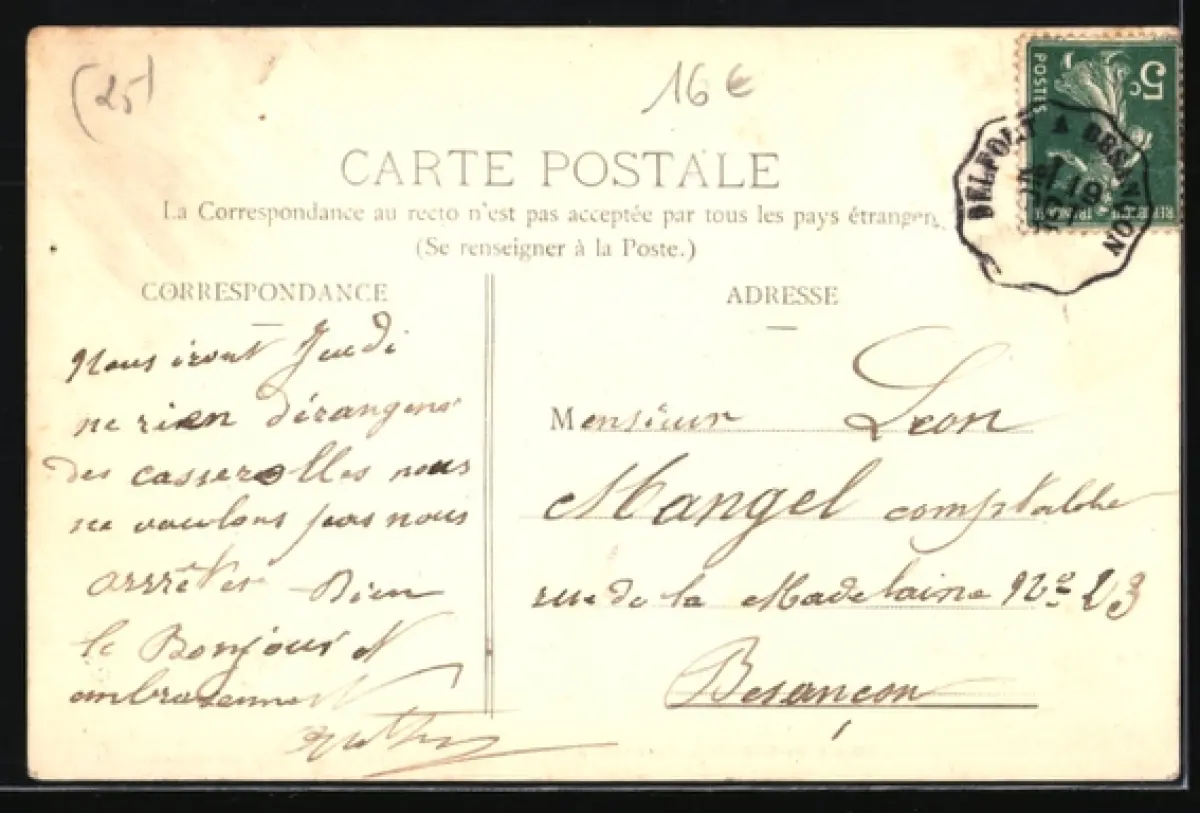 (25)
16 €
5c
POSTES
BELFORT A BESANÇON
CARTE POSTALE
La Correspondance au recto n'est pas acceptée par tous les pays étrangers
(Se renseigner à la Poste.)
CORRESPONDANCE
ADRESSE
Nous iront Jeudi
ne rien dérangens
des casserolles nous
ne voulons pas nous
arrrêter Bien
le Bonjour et
embrasement
Monsieur Leon
Mangel comptable
rue de la Madelaine No 23
Besançon